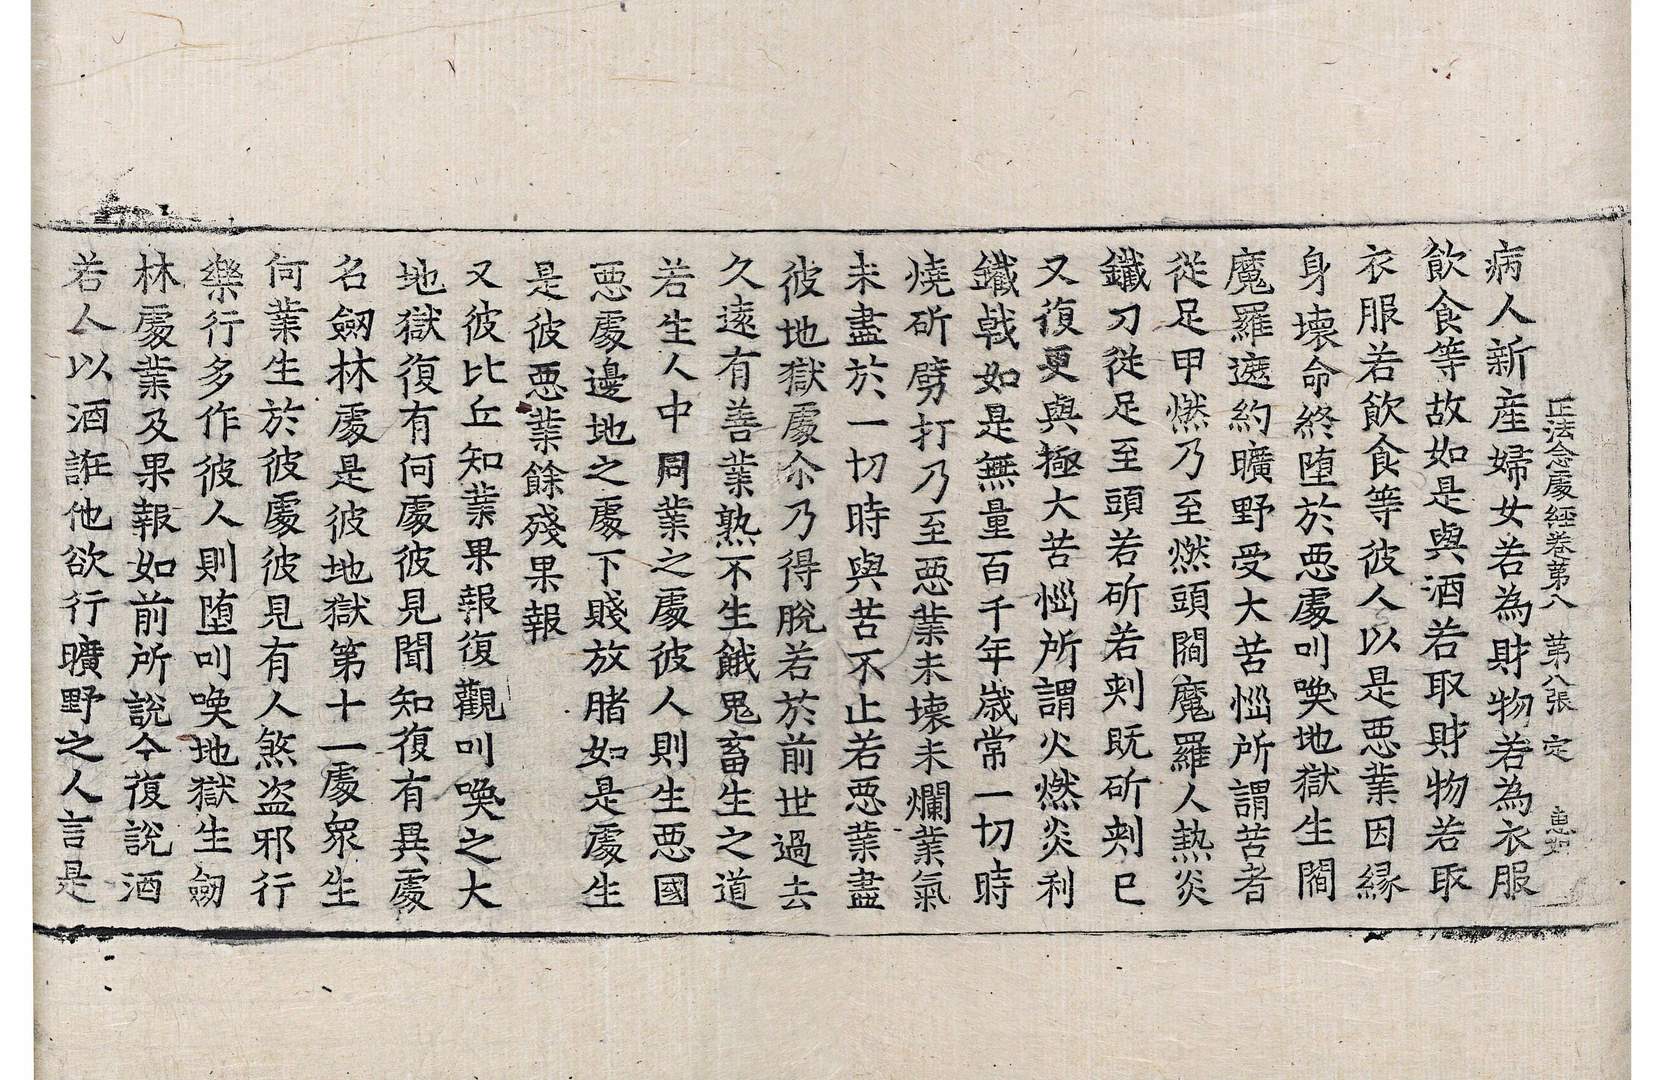 正法念處經卷第八　第八張　定
病人新産婦女若為財物若為衣服
飲食等故如是與酒若取財物若取
衣服若飲食等彼人以是惡業因緣
身壞命終堕於惡處叫喚地獄生閻
魔羅遮約曠野受大苦惱所謂苦者
從足甲燃乃至燃頭閻魔羅人熱炎
鐵刀從足至頭若斫若刾既斫刾已
又復更與極大苦惱所謂火燃炎利
鐵戟如是無量百千年歲常一切時
燒斫劈打乃至惡業未壞未爛業氣
未盡於一切時與苦不止若惡業盡
彼地獄處尒乃得脫若於前世過去
久遠有善業熟不生餓鬼畜生之道
若生人中同業之處彼人則生惡國
惡處邊地之處下賤放賭如是處生
是彼惡業餘殘果報
又彼比丘知業果報復觀叫喚之大
地獄復有何處彼見聞知復有異處
名劒林處是彼地獄第十一處衆生
何業生於彼處彼見有人煞盗邪行
樂行多作彼人則堕叫喚地獄生劒
林處業及果報如前所說今復說酒
若人以酒誑他欲行曠野之人言是